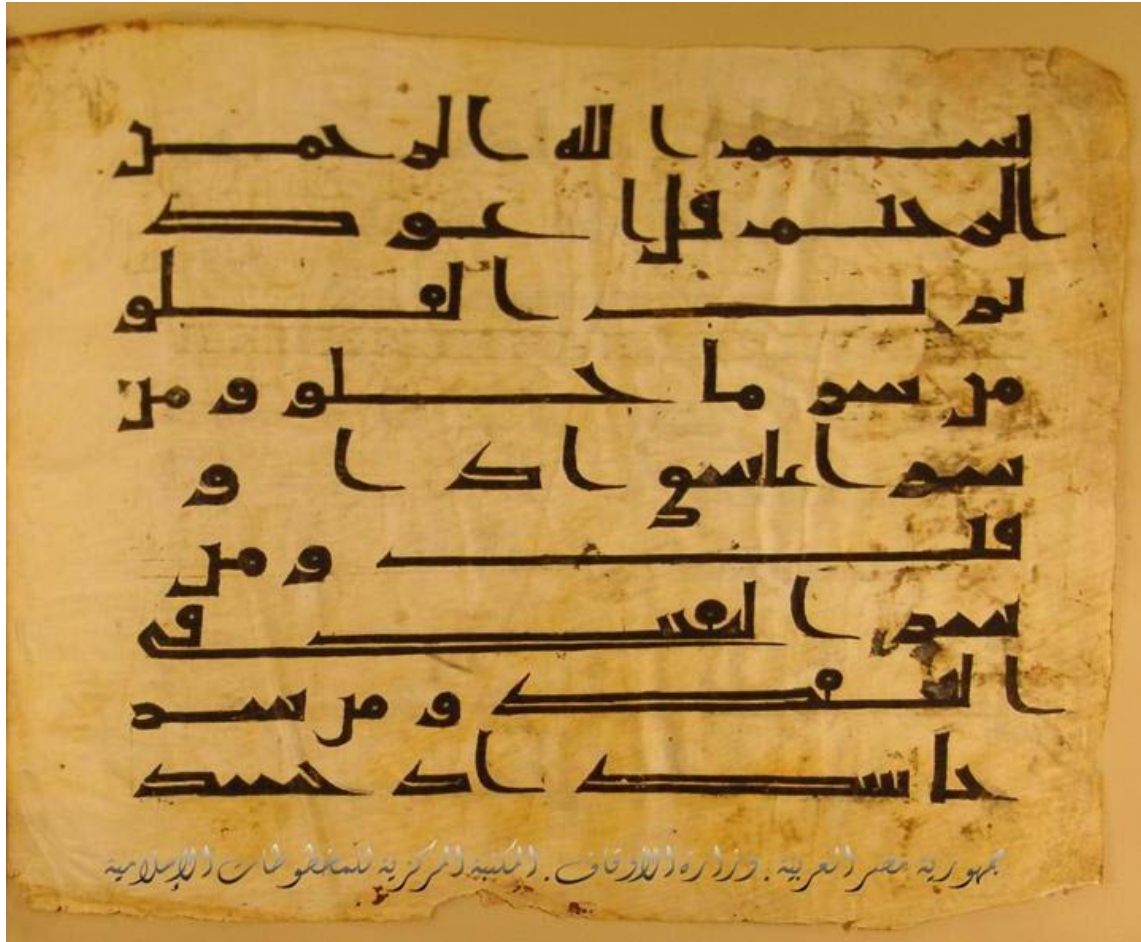 بسم الله الرحمن
الرحيم قل اعوذ
برب الفلق
من شر ما خلق ومن
شر غاسق اذا و
قب ومن
شر النفثت في
العقد ومن شر
حاسد اذ حسد
جمهورية مصر العربية . وزارة الأوقاف . المكتبة المركزية للمخطوطات الإسلامية